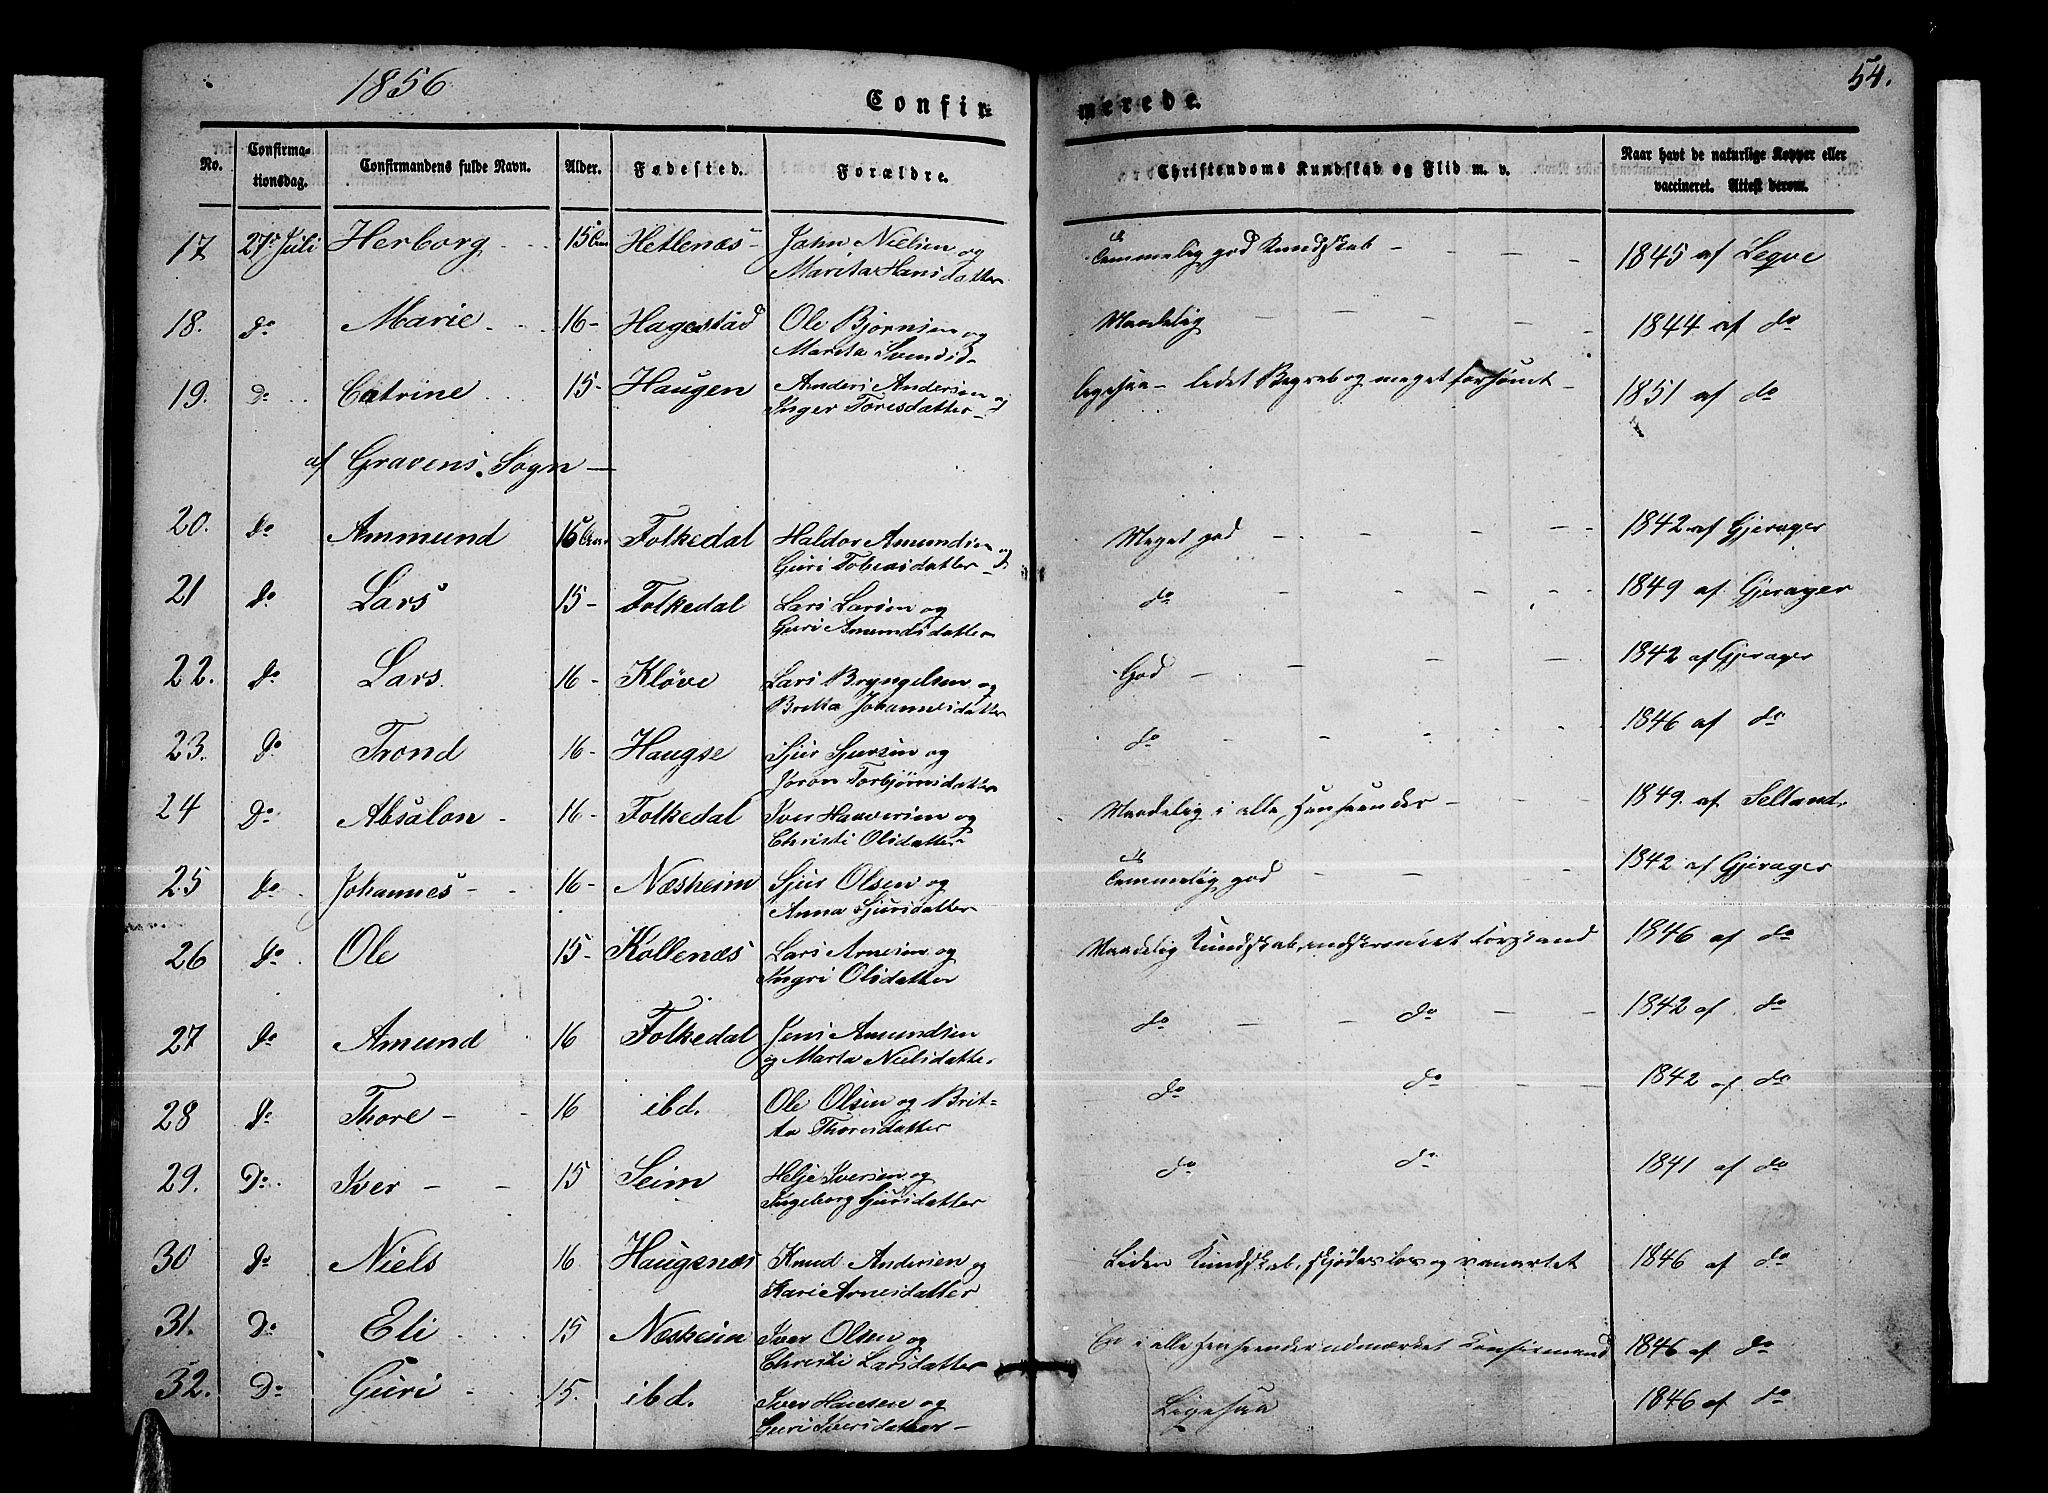 1856
54.
Confir=
merede.
No.
Confirma-
tionsdag.
Confirmandens fulde Navn.
Alder.
Fødested.
Forældre.
Christendoms Kundskab og Flid m. v.
Naar havt de naturlige Kopper eller
vaccineret. Attest derom.
17 27de Juli Herborg 15 Hetlenæs John Nielsen og
Marita Hansdatter
Temmelig god Kundskab 1845 af Leqve
18. do Marie 16 Hagestad Ole Bjørnsen og
Marita Svendsd.
Maadelig 1844 af do
19. do Catrine 15 Haugen Anders Andersen og
Inger Toresdatter
ligesaa ledet Begreb og meget forsømt 1851 af do
af Gravens Sogn
20. do Ammund 16 Folkedal Haldor Amundsen og
Guri Tobiasdatter
Meget god 1842 af Gjerager
21 do Lars 15 Folkedal Lars Larsen og
Guri Amundsdatter
do 1849 af Gjerager
22. do Lars 16 Kløve Lars Bryngelsen og
Britta Johannesdatter
God 1842 af Gjerager
23. do Trond 16 Haugse Sjur Sjursen og
Joron Torbjørnsdatter
do 1846 af do
24 do Absalon 16 Folkedal Iver Haaversen og
Christi Olsdatter
Maadelig i alle Henseender 1849. af Selland.
25 do Johannes 16 Næsheim Sjur Olsen og
Anna Sjursdatter
Temmelig god 1842 af Gjerager
26 do Ole 15 Kollenæs Lars Arnesen og
Ingri Olsdatter
Maadelig Kundskab, indskrenket Forstand 1846 af do
27 do Amund 16 Folkedal Jens Amundsen
og Marta Nielsdatter
do do 1842 af do
28 do Thore 16 ibd. Ole Olsen og Brit-
ta Thoresdatter
do do 1842 af do
29. do Iver 15 Seim Helje Iversen og
Ingeborg Sjursdatter
do do 1841 af do
30 do Niels 16 Haugenæs Knud Andersen og
Kari Arnesdatter
Liden Kundskab, skjødesløs og vanartet 1846 af do
31. do Eli 15 Næsheim Iver Olsen og
Christi Larsdatter
En i alle Henseender udmærket Konfirmand 1846 af do
32. do Guri 15. ibd. Iver Hansen og
Guri Iversdatter
Ligesaa 1846 af do